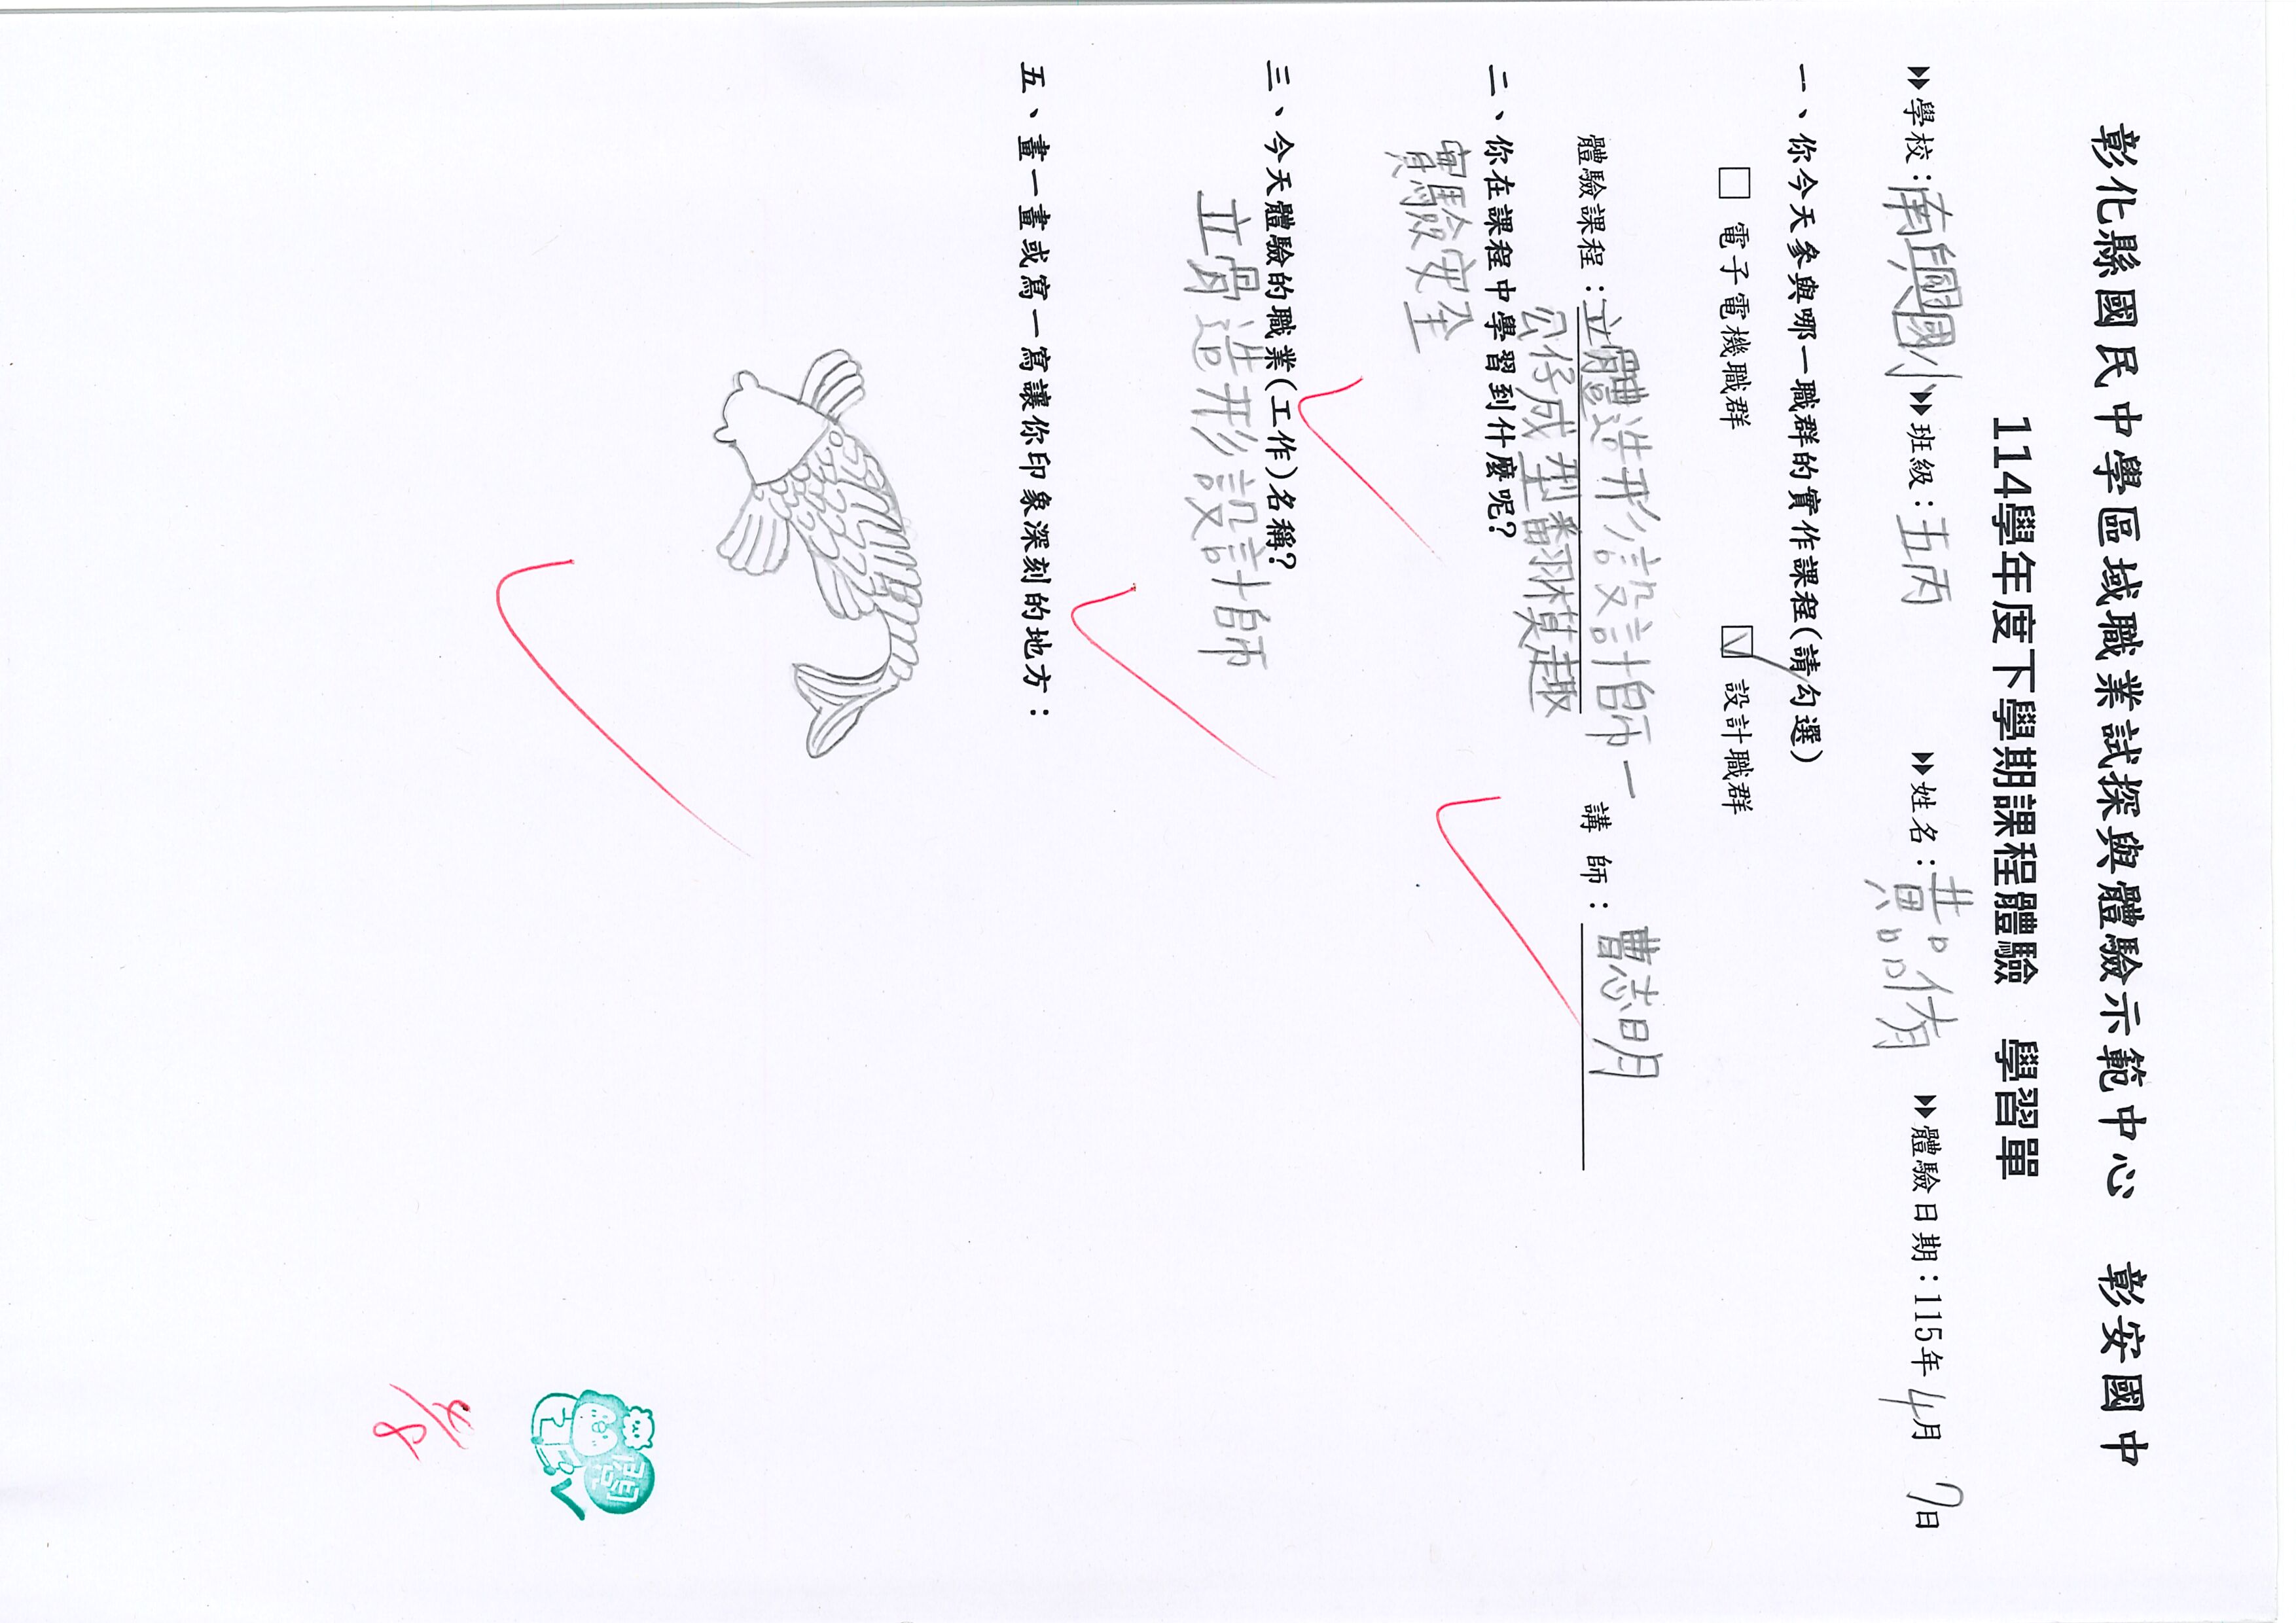 彰化縣國民中學區域職業試探與體驗示範中心 彰安國中
114學年度下學期課程體驗 學習單
學校：南興國小 班級：五丙 姓名：黃品侑 體驗日期：115年4月7日
一、你今天參與哪一職群的實作課程(請勾選)
□ 電子電機職群 ☑ 設計職群
體驗課程：立體造形設計師一 講 師：曹志明
公仔成型翻模趣
二、你在課程中學習到什麼呢?
實驗安全
三、今天體驗的職業(工作)名稱?
立骨造形設計師
五、畫一畫或寫一寫讓你印象深刻的地方：
閱
4/8